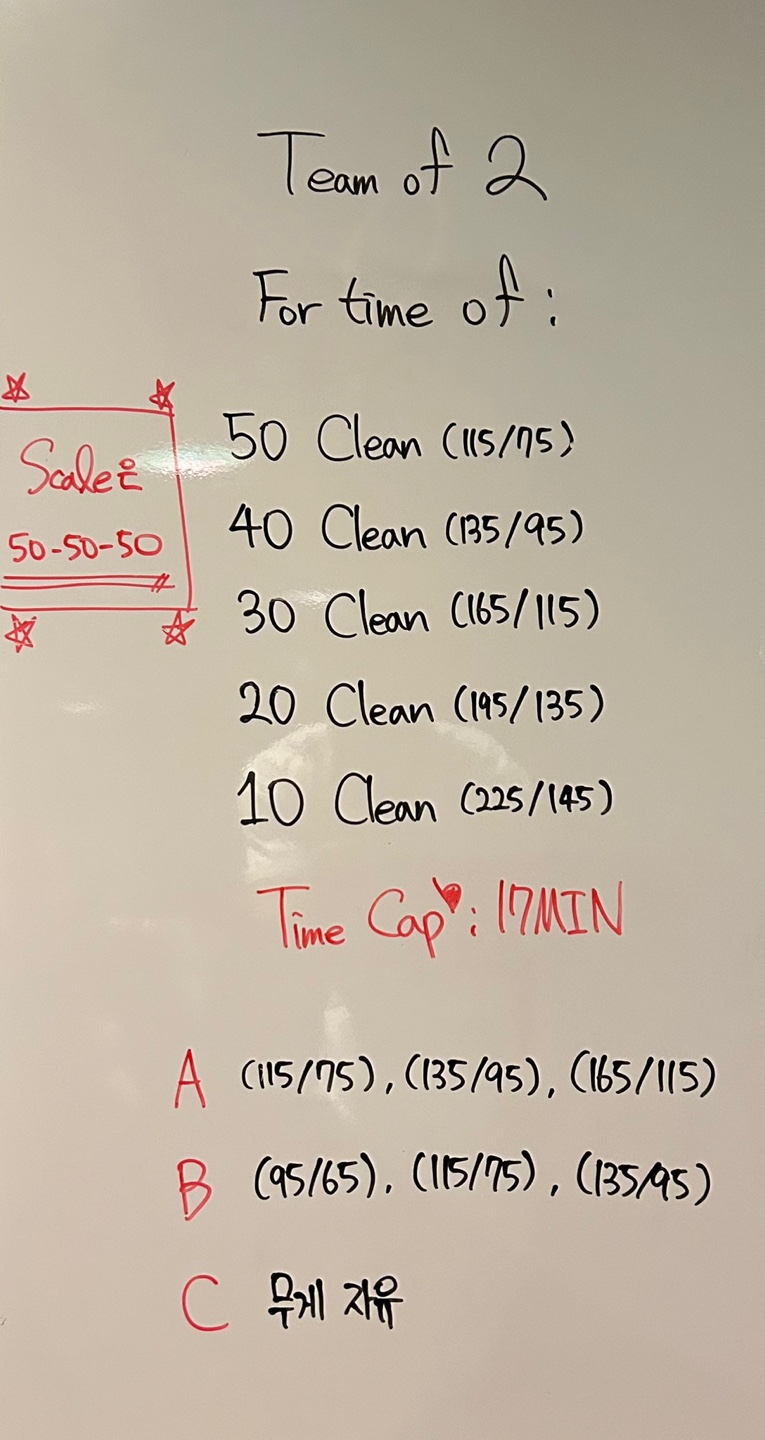 Team of 2
For time of :
Scale은
50-50-50
50 Clean (115/75)
40 Clean (135/95)
30 Clean (165/115)
20 Clean (195/135)
10 Clean (225/145)
Time Cap : 17MIN
A (115/75), (135/95), (165/115)
B (95/65), (115/75), (135/95)
C 무게 자유